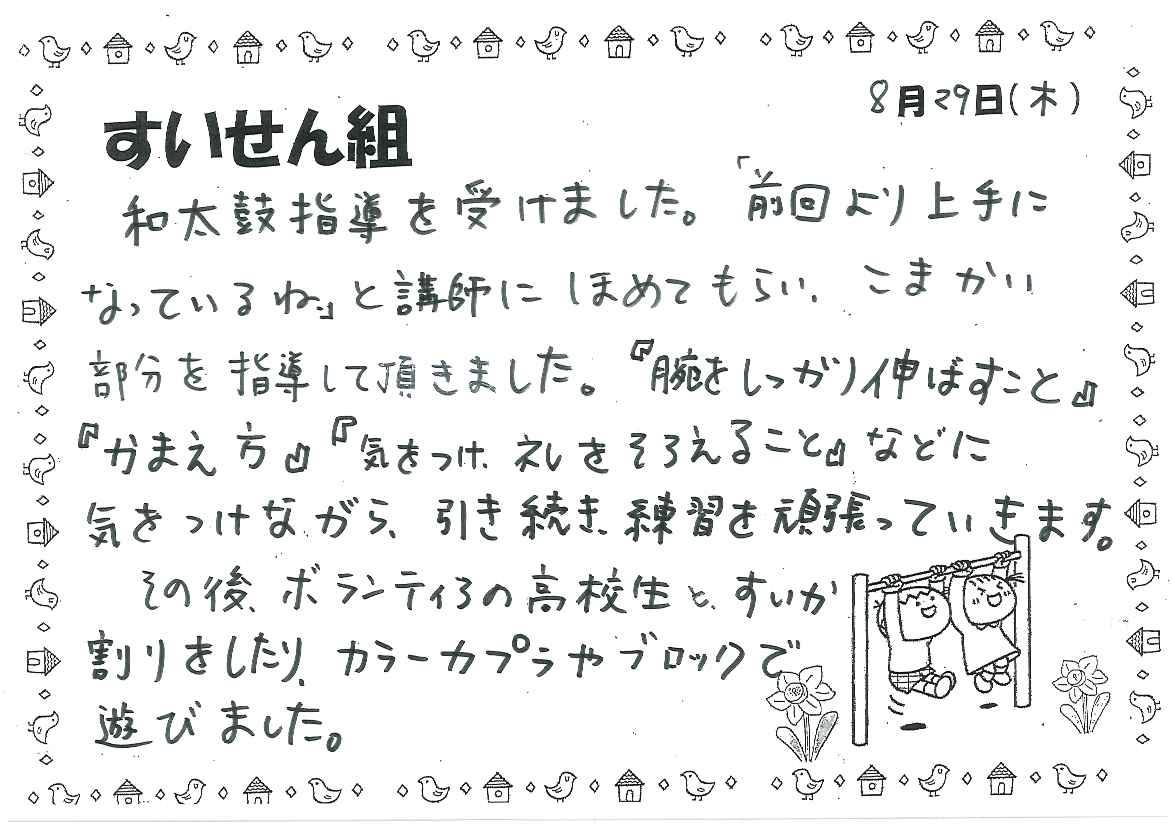 8月29日(木)
すいせん組
和太鼓指導を受けました。「前回より上手に
なっているね。」と講師にほめてもらい、こまかい
部分を指導して頂きました。『腕をしっかり伸ばすこと』
『かまえ方』『気をつけ、礼をそろえること』などに
気をつけながら、引き続き、練習を頑張っていきます。
その後、ボランティアの高校生と、すいか
割りをしたり、カラーカプラやブロックで
遊びました。